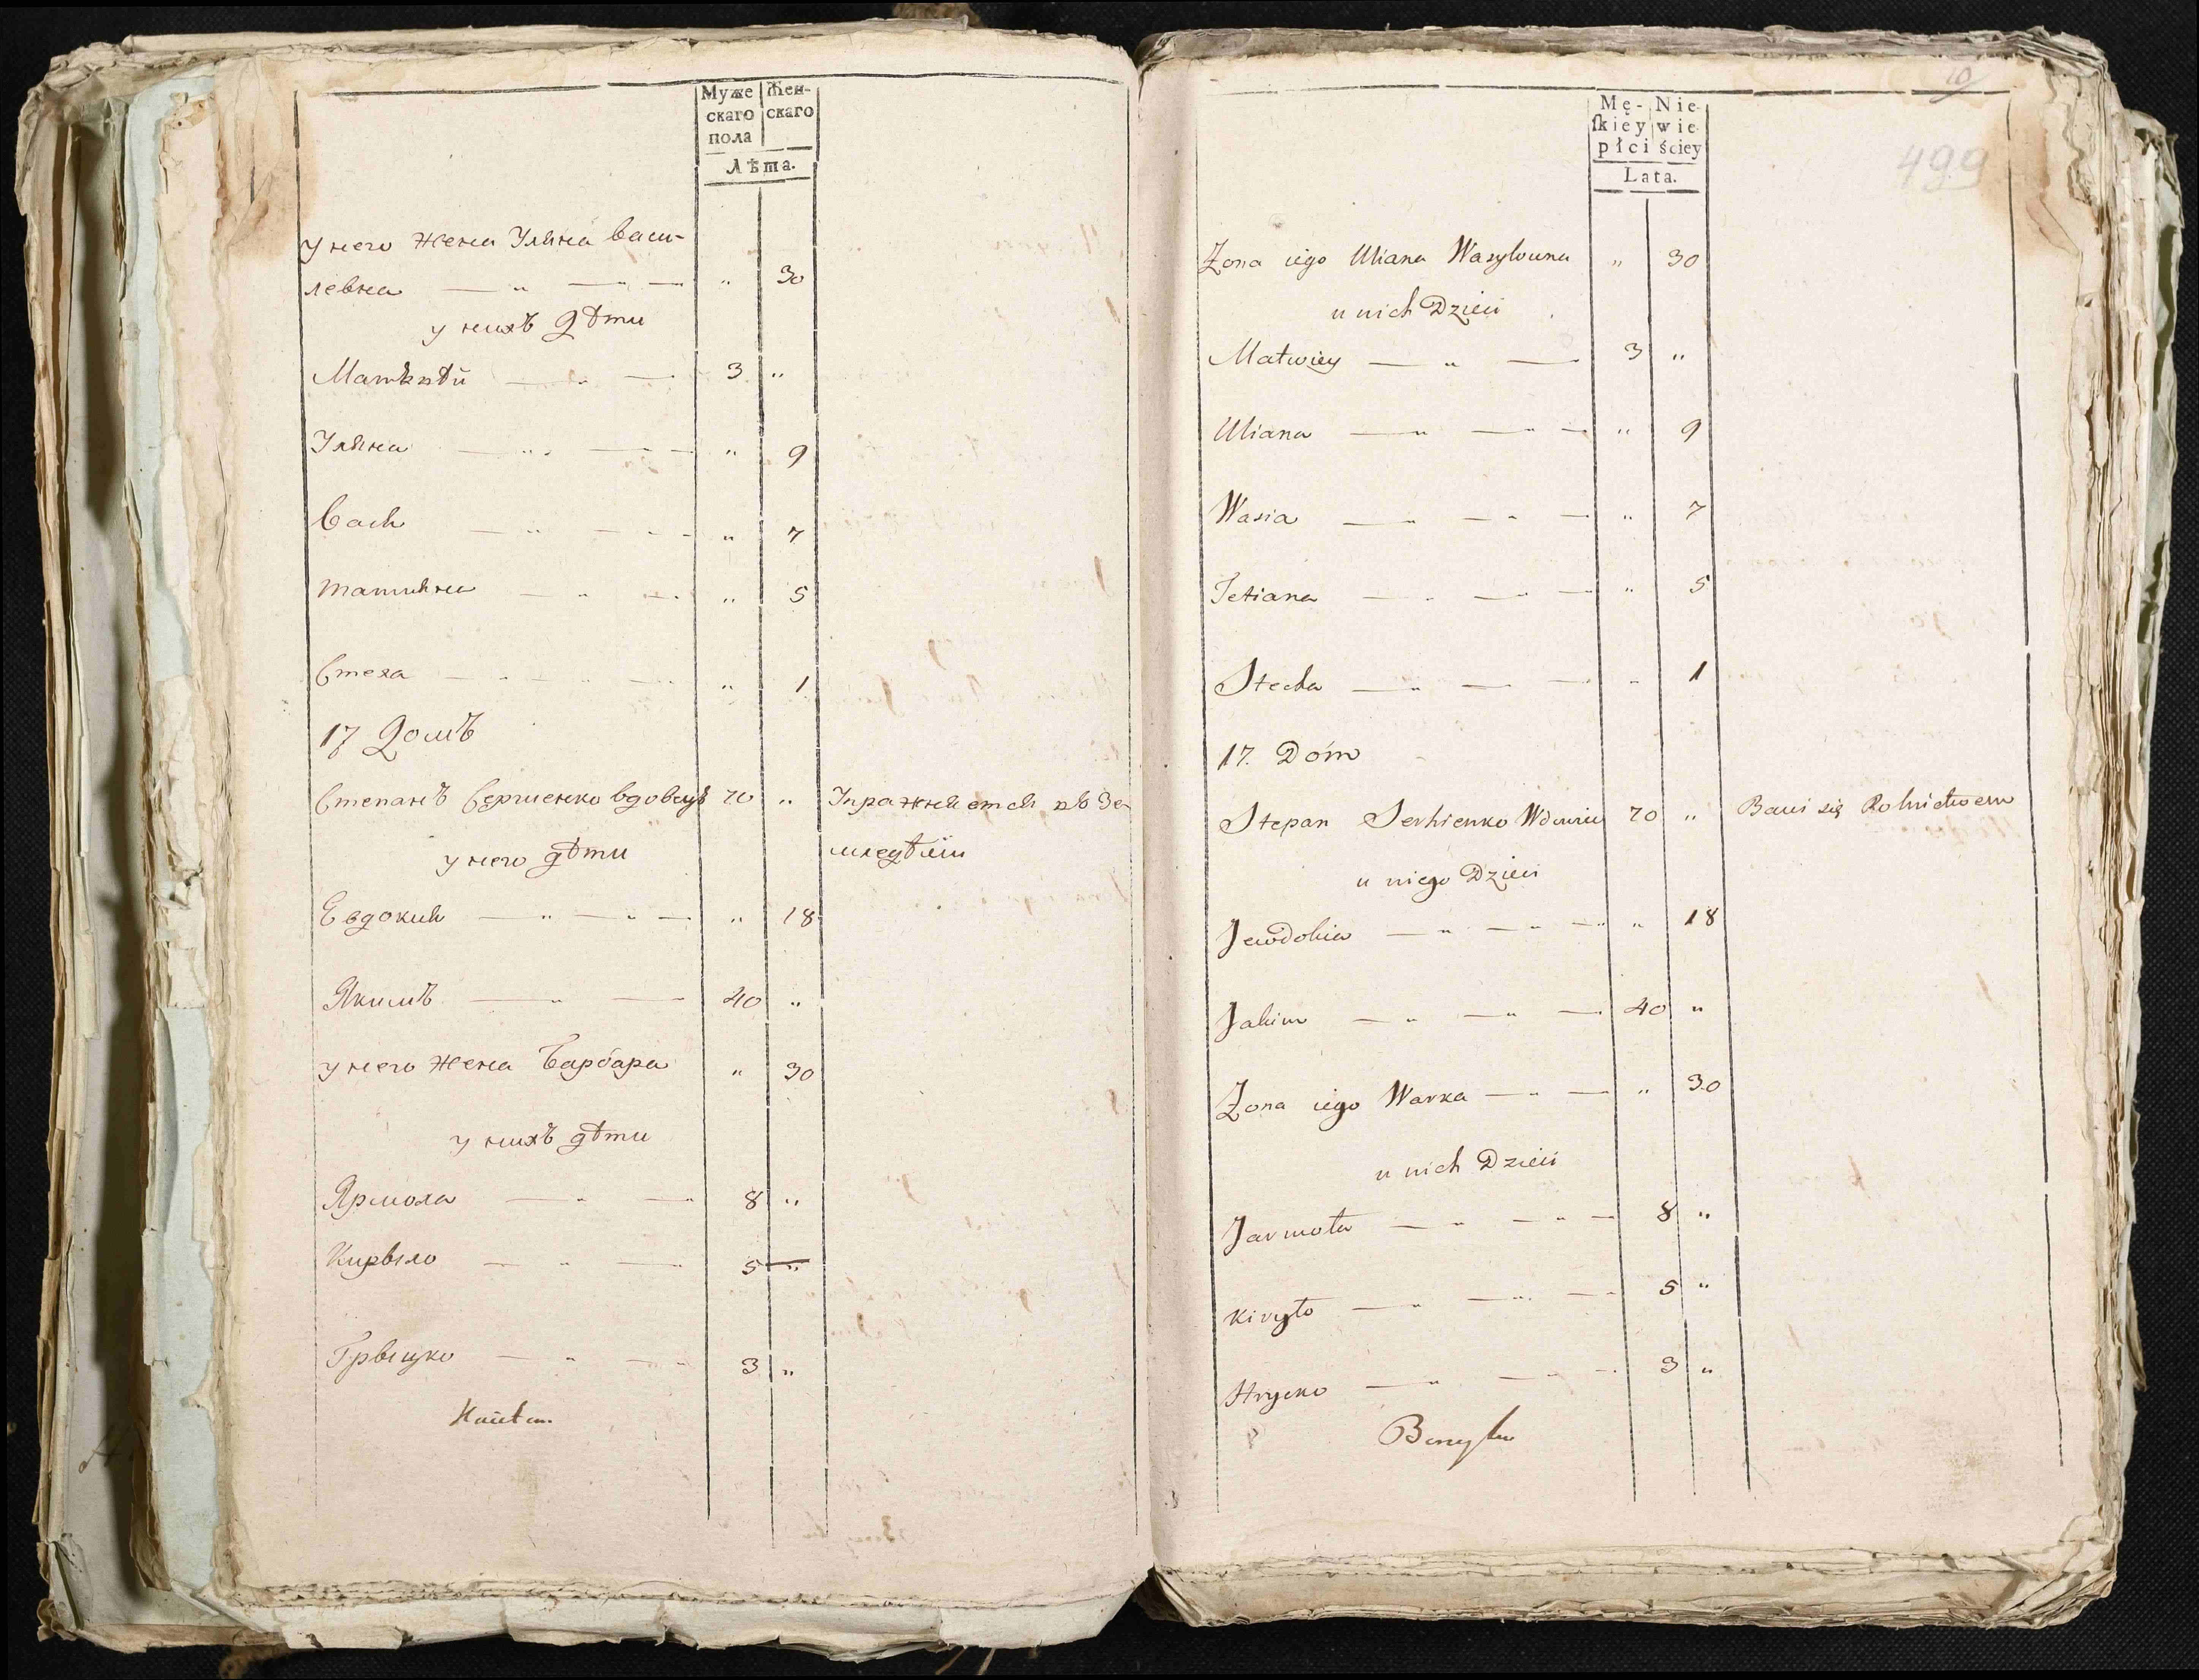 Муже Жен-
скаго скаго
пола
Лѣта.
у него жена Уляна Васи-
левна " 30
у нихъ Дѣти
Матвѣй 3 "
Уляна " 9
Вася " 7
Татияна " 5
Стеха " 1
17 Домъ
Степанъ Сергиенко вдовецъ 70 " Упражняется въ Зе
у него дѣти мледѣлiи
Евдокия " 18
Якимъ 40 "
у него жена Варвара " 30
у нихъ дѣти
Ярмола 8 "
Кирыло 5 "
Грыцко 3 "
10
499
Mę- Nie-
ſkiey wie-
płci ściey
Lata.
Żona iego Uliana Wasylowna " 30
u nich Dzieci
Matwiey 3 "
Uliana " 9
Wasia " 7
Tetiana " 5
Stecha " 1
17. Dóm
Stepan Serhienko Wdowiec 70 " Bawi się Rolnictwem
u niego Dzieci
Jewdokia " 18
Jakim 40 "
Żona iego Warka " 30
u nich Dzieci
Jarmoła 8 "
Kiryło 5 "
Hrycko 3 "